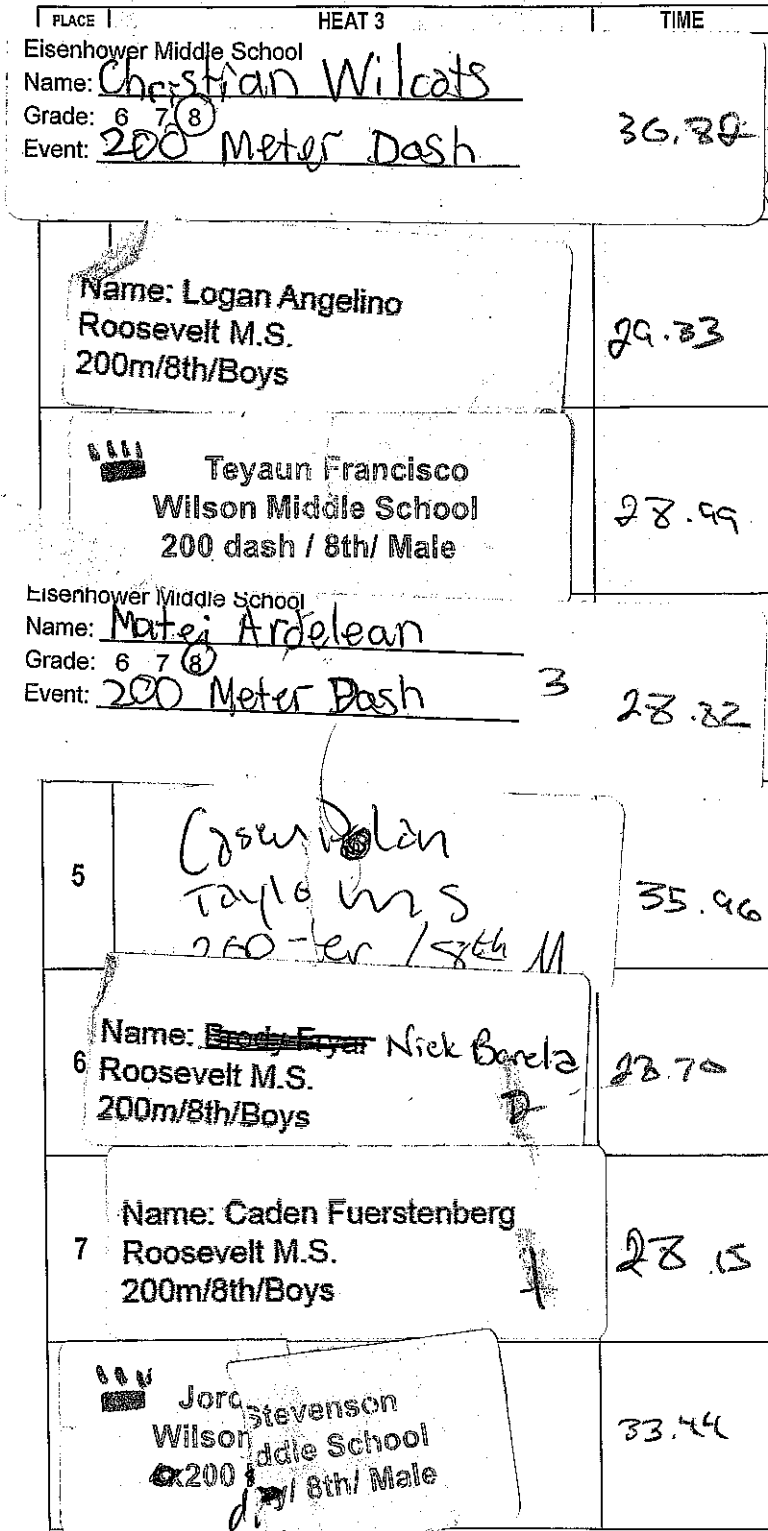 PLACE HEAT 3 TIME
Eisenhower Middle School
Name: Christian Wilcats
Grade: 6 7 8
Event: 200 Meter Dash
36.82
Name: Logan Angelino
Roosevelt M.S.
200m/8th/Boys
29.33
Teyaun Francisco
Wilson Middle School
200 dash / 8th/ Male
28.99
Eisenhower Middle School
Name: Matei Ardelean
Grade: 6 7 8
Event: 200 Meter Dash 3
28.82
5
Taylo M S
8th M
35.96
6
Name: Brody Fryar Nick Barela
Roosevelt M.S.
200m/8th/Boys
2
28.70
7
Name: Caden Fuerstenberg
Roosevelt M.S.
200m/8th/Boys
1
28.15
Stevenson
Wilson ddle School
200 / 8th/ Male
33.44